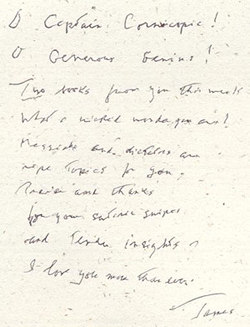 O Captain Cornucopic!
O Generous Genius!
Two books from you this week
What a wicked
Messiahs and dictators are
ripe topics for you.
and thanks
for your satiric swipes
and tender insights
I love you more than ever.
James